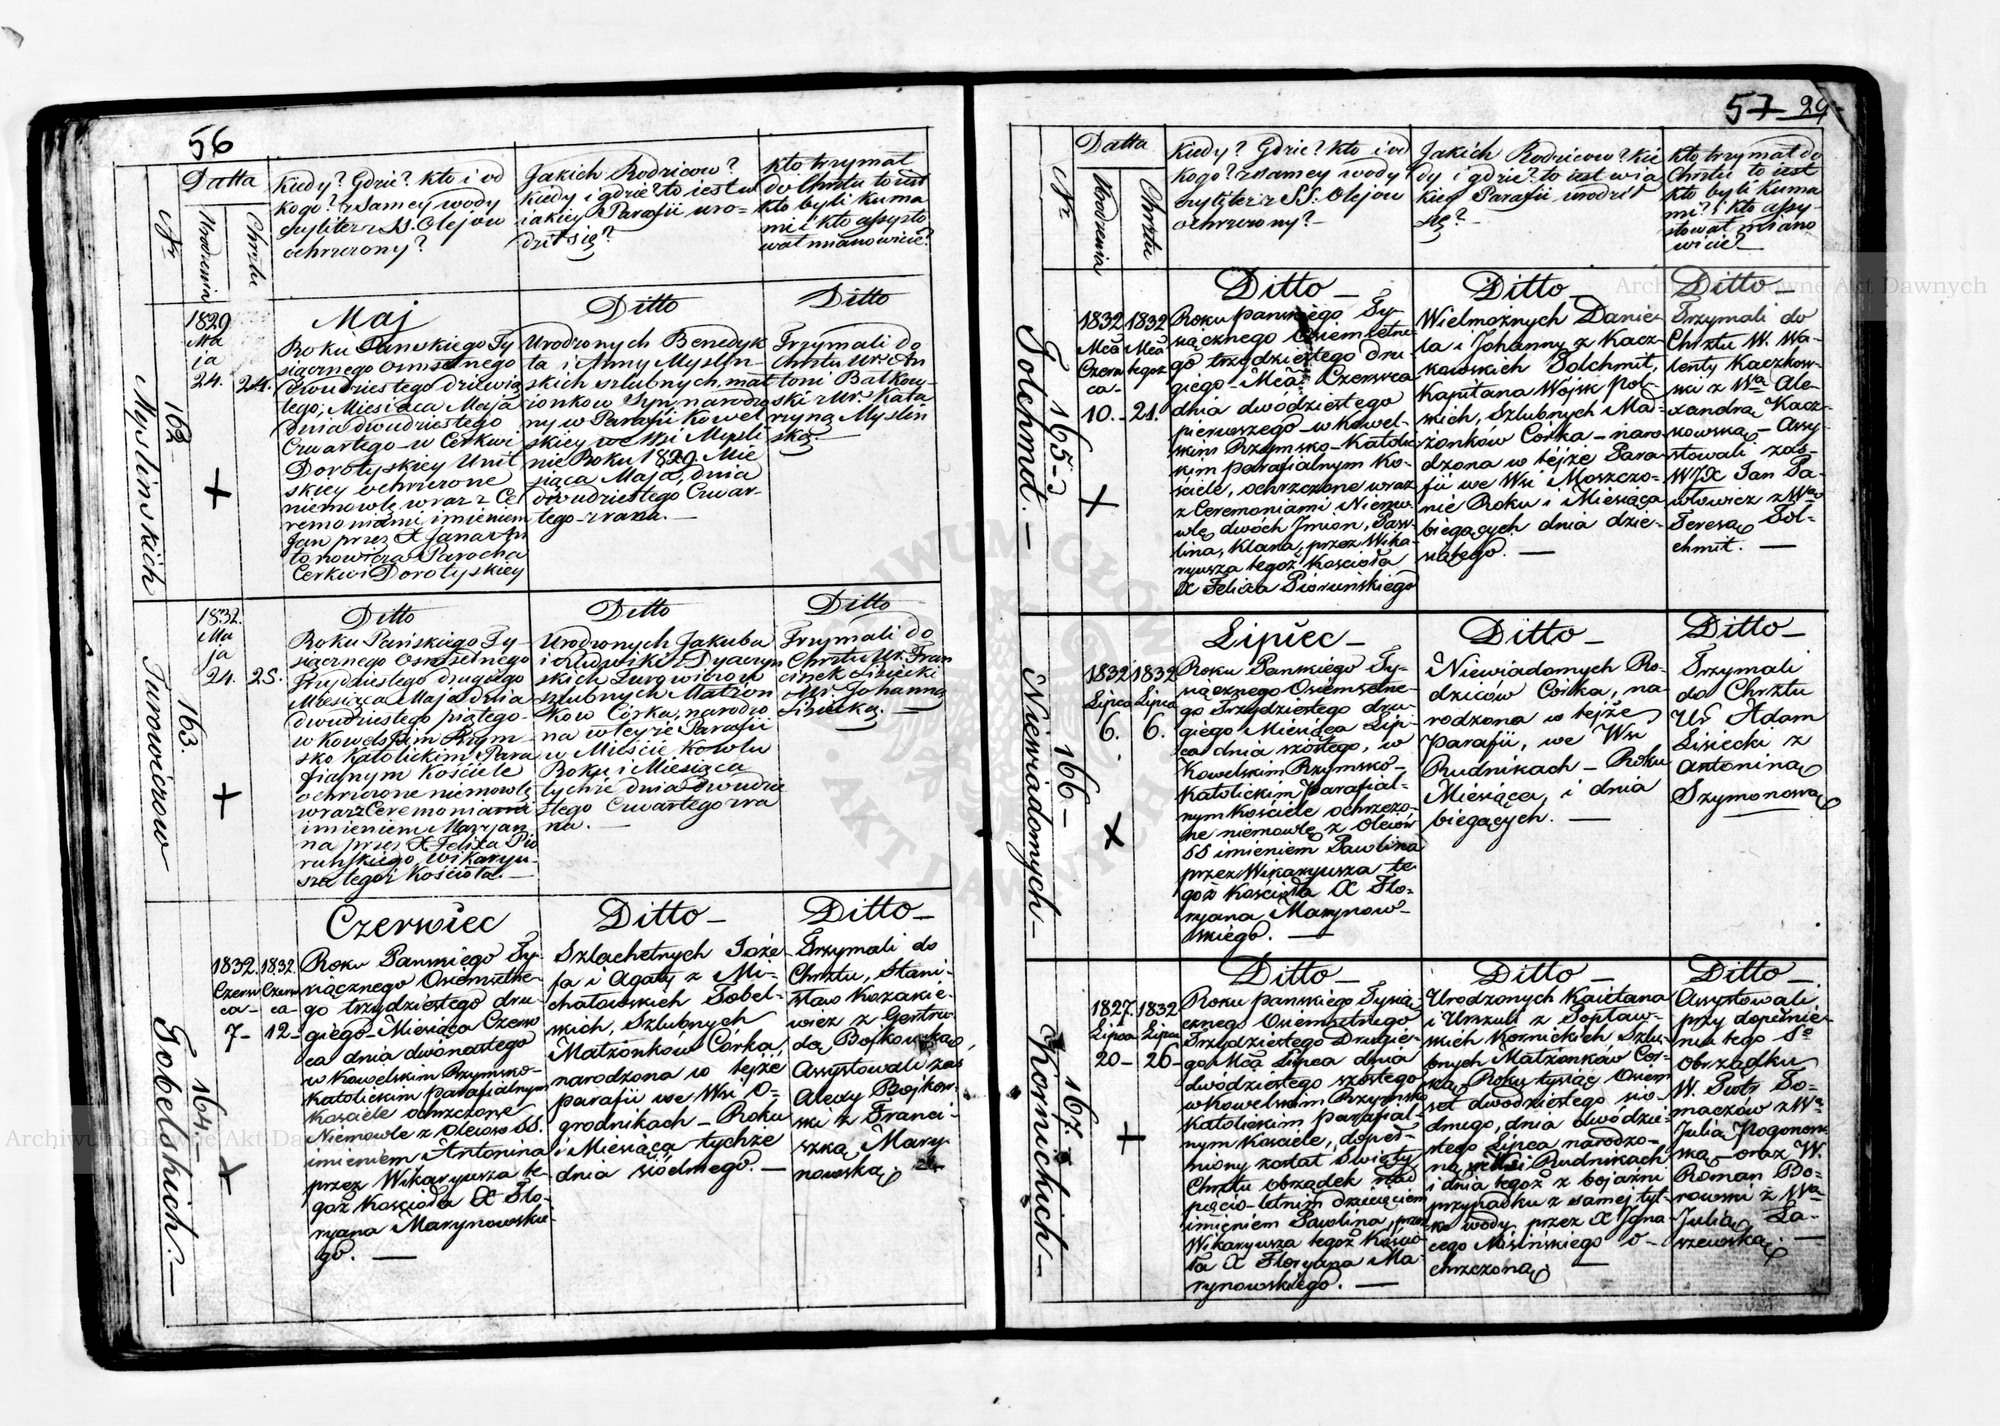 56
Datta
Nr.
Urodzenia
Chrztu
Kiedy? Gdzie? kto i od
kogo? z Samey wody
czyli też z SS. Olejow
ochrzczony?
Jakich Rodzicow?
Kiedy i gdzie? to iest w
iakiey Parafii uro-
dził się?
Kto trzymał
do Chrztu to iest
kto byli Kuma
mi i kto assysto
wał mianowicie?
162.
Myslinskich
1829
Ma
ja
24.
24.
Maj
Roku Panskiego Ty
siącznego Osmsetnego
dwudziestego dziewią
tego, Miesiąca Maja
dnia dwudziestego
Czwartego w Cerkwi
Dorotyskiey Unit
skiey ochrzczone
niemowle wraz z Ce
remoniami imieniem
Jan przez X Jana An
tonowicza Parocha
Cerkwi Dorotyskiey
Ditto
Urodzonych Benedyk
ta i Anny Myslin-
skich szlubnych mał
zonkow Syn, narodzo
ny w Parafii Kowel
skiey we Wsi Mysli
nie Roku 1829 Mie
siąca Maja, dnia
dwudziestego Czwar-
tego z rana.
Ditto
Trzymali do
Chrztu Ur. An
toni Bałkow-
ski z Ur. Kata
rzyną Myslin
ską.
163.
Turowiczow
1832.
Ma
ja
24.
25.
Ditto
Roku Pańskiego Ty
siącznego Osmsetnego
Trzydziestego drugiego
Miesiąca Maja dnia
dwudziestego piątego
w Kowelskim Rzym-
sko Katolickim Para
fialnym Kościele
ochrzczone niemowle
wraz z Ceremoniami
imieniem Maryan
na przez X Felixa Pio
runskiego Wikaryu-
sza tegoż Kościoła.
Ditto
Urodzonych Jakuba
i Ludwiki z Dyaczyn
skich Turowiczow
szlubnych Małzon
kow Córka, narodzo
na w teyże Parafii
w Mieście Kowlu
Roku i Miesiąca
tychże dnia dwudzie
stego Czwartego z ra
na.
Ditto
Trzymali do
Chrztu Ur. Fran
ciszek Lisiecki
z Ur. Johanną
Lisiecką.
164.
Tobelskich.
1832.
Czerw
ca
7
1832.
Czerw
ca
12
Czerwiec
Roku Panskiego Ty-
siącznego Osiemsetne-
go trzydziestego dru-
giego Miesiąca Czerw
ca dnia dwónastego
w Kowelskim Rzymsko-
Katolickim parafialnym
Kosciele ochrzczone
Niemowle z Oleiow SS.
imieniem Antonina
przez Wikaryusza te-
goż Kościoła X Flo-
ryana Marynowskie-
go.
Ditto
Szlachetnych Józe-
fa i Agaty z Mi-
chałowskich Tobel-
skich, Szlubnych
Małżonków Córka
narodzona w tejże
parafii we Wsi O-
grodnikach Roku
i Miesiąca tychże
dnia siódmego.
Ditto
Trzymali do
Chrztu, Stani-
sław Kozakie-
wicz z Gertru-
dą Bojkowską,
Assystowali zaś
Alexy Bojkow-
ski z Franci-
szką Mary-
nowską.
57 29
Datta
Nr
Urodzenia
Chrztu
Kiedy? Gdzie? kto i od
kogo? z Samey wody
czyli też z SS. Olejow
ochrzczony?
Jakich Rodzicow? Kie
dy i gdzie? to iest w ia
kiey Parafii urodził
się?
Kto trzymał do
Chrztu to iest
kto byli Kuma
mi? i kto assy-
stował miano
wicie?
165
Tolchmit.
1832
Mca
Czerw
ca
10.
1832
Mca
tegoż
21.
Ditto
Roku panskiego Ty-
siącznego Osiemsetne-
go trzydziestego dru-
giego Mca Czerwca
dnia dwódziestego
pierwszego w Kowel-
skim Rzymsko-Katolic
kim parafialnym Ko-
ściele, ochrzczone wraz
z Ceremoniami Niemo-
wlę dwóch Jmion, Paw-
lina, Klara, przez Wika-
ryusza tegoż Kościoła
X Felixa Piorunskiego
Ditto
Wielmożnych Danie-
la i Johanny z Kacz-
kowskich Tolchmit,
Kapitana Wojsk pol-
skich, Szlubnych Mał-
żonków Córka naro-
dzona w tejże Para-
fii we Wsi Moszczo-
nie Roku i Miesiąca
biegących dnia dzie-
siątego.
Ditto
Trzymali do
Chrztu W. Wa-
lenty Kaczkow-
ski z Wą Ale-
xandrą Kacz-
kowską Assy-
stowali zaś
WJX Jan Pa-
włowicz z Wą
Teresą Tol-
chmit.
166
Niewiadomych
1832
Lipca
6.
1832
Lipca
6.
Lipiec
Roku Panskiego Ty-
siącznego Osiemsetne-
go Trzydziestego dru-
giego Miesiąca Lip-
ca dnia szóstego, w
Kowelskim Rzymsko-
Katolickim Parafial-
nym Kościele ochrzczo-
ne niemowlę z Oleiów
SS imieniem Pawlina
przez Wikaryusza te
goż Kościoła X Flo-
ryana Marynow-
skiego.
Ditto
Niewiadomych Ro-
dziców Córka, na-
rodzona w tejże
Parafii, we Wsi
Rudnikach Roku
Miesiąca, i dnia
biegących.
Ditto
Trzymali
do Chrztu
Ur Adam
Lisiecki z
Antoniną
Szymonową
167.
Kornickich
1827.
Lipca
20
1832
Lipca
26
Ditto
Roku panskiego Tysią-
cznego Osiemsetnego
Trzydziestego Drugie-
go Mca Lipca dnia
dwódziestego szóstego
w Kowelskim Rzymsko
Katolickim parafial-
nym Kościele, dopeł-
niony został Święty
Chrztu obrządek nad
pięcio-letnim dziecięciem
imieniem Pawlina, przez
Wikaryusza tegoż Kościo-
ła X Floryana Ma-
rynowskiego.
Ditto
Urodzonych Kaietana
i Urszuli z Sopław-
skich Kornickich Szlu-
bnych Małżonków Cór-
ka, Roku tysiąc Osiem
set dwódziestego sió-
dmego, dnia dwódzie-
stego Lipca narodzo-
na we Wsi Rudnikach
i dnia tegoż z bojaźni
przypadku z samej tyl-
ko wody przez X Igna-
cego Misińskiego o-
chrzczoną.
Ditto
Assystowali
przy dopełnie-
niu tego So
obrządku
W. Piotr To-
maczów z Wą
Julią Pogonow-
ską oraz W.
Roman Bo-
rowski z Wą
Julią La-
szewską.